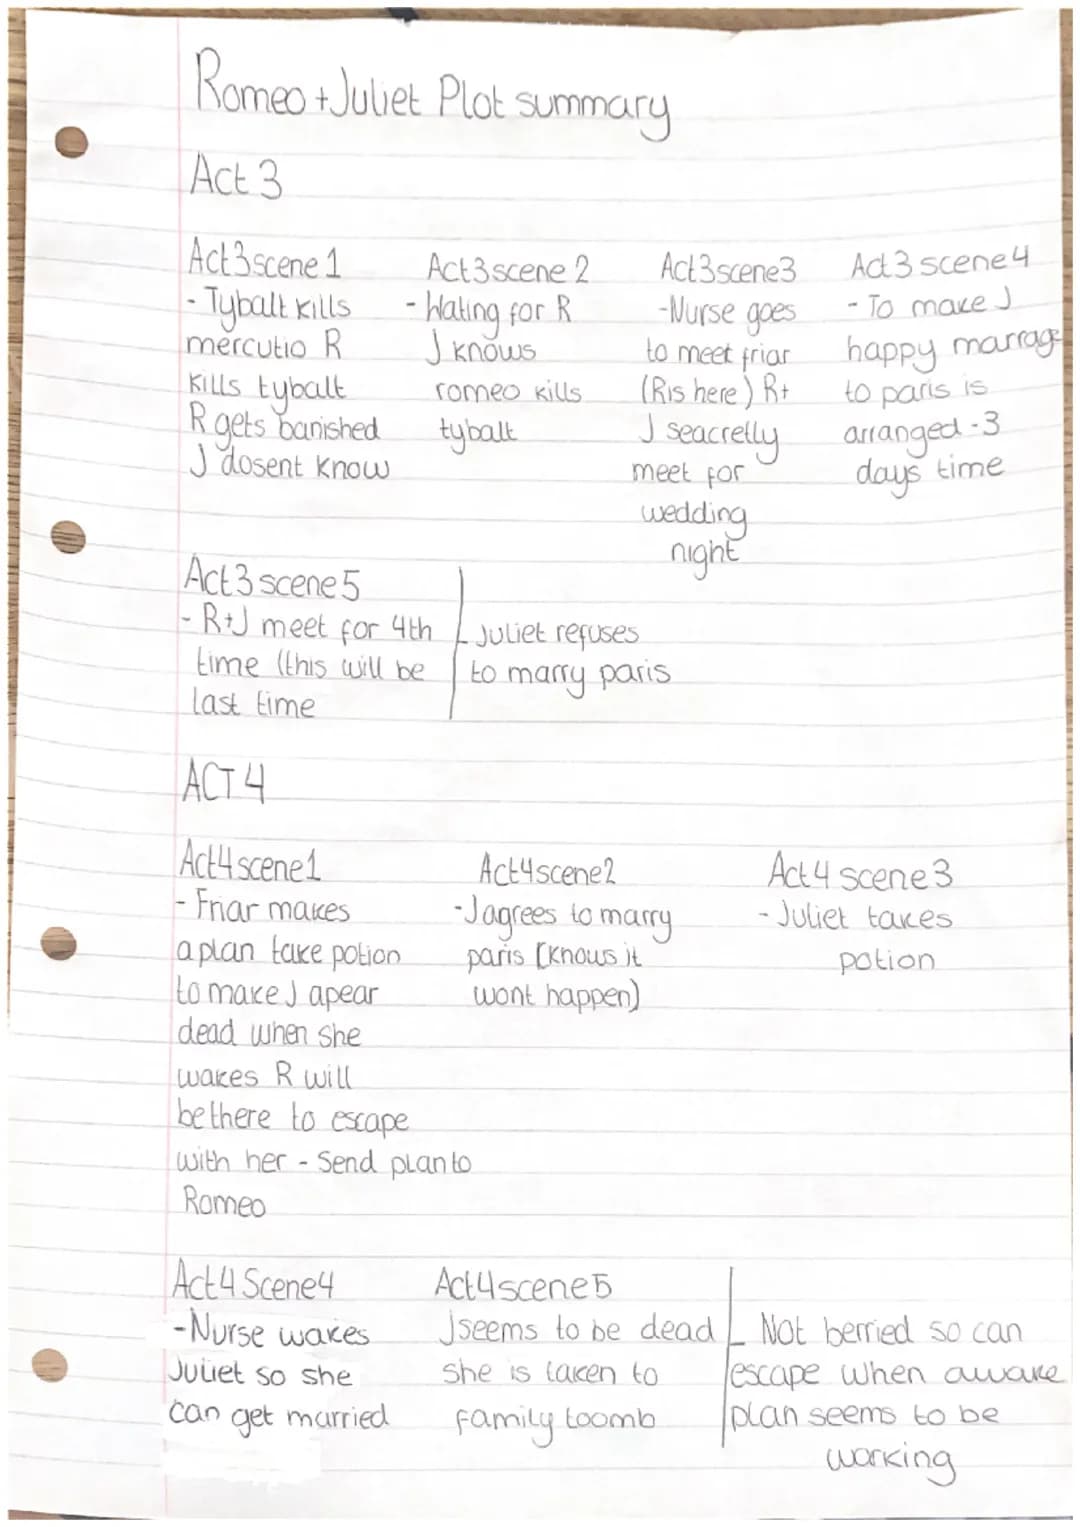 Romeo + Juliet Plot summary
Act 3
Act3 scene 1
- Tybalt kills
mercutio R
kills tybalt
R gets banished
J dosent know
Act3 scene 2
- Wating for R
J knows
romeo kills
tybalt
Act3 scene3
-Nurse goes
to meet friar
(R is here) R+
J seacrelly
meet for
wedding
night
Act3 scene 4
- To make J
happy marrage
to paris is
arranged - 3
days time
Act3 scene 5
- R+J meet for 4th
time (this will be
last time
Juliet refuses
to marry paris
ACT 4
Act4 scene1
- Friar makes
a plan take potion
to make J apear
dead when she
wakes R will
be there to escape
with her - Send plan to
Romeo
Act4 scene2
- J agrees to marry
paris (knows it
wont happen)
Act 4 scene 3
- Juliet takes
potion
Act4 Scene4
-Nurse wakes
Juliet so she
can get married
Act4 scene5
J seems to be dead
she is taken to
family toomb
Not berried so can
escape when awake
plan seems to be
working